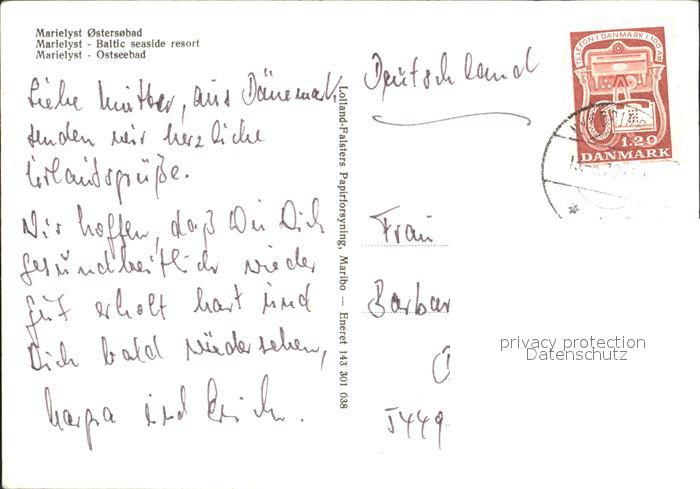 Marielyst Østersøbad
Marielyst - Baltic seaside resort
Marielyst - Ostseebad
Liebe Mutter, aus Dänemark
senden wir herzliche
Urlaubsgrüße.
Wir hoffen, daß Du Dich
gesundheitlich wieder
gut erholt hast und
Dich bald wiedersehen,
und
Lolland-Falsters Papirforsyning, Maribo — Eneret 143 301 038
TELEFON I DANMARK I 100 ÅR
1.20
DANMARK
Deutschland
Frau
Barbar
5449
privacy protection
Datenschutz